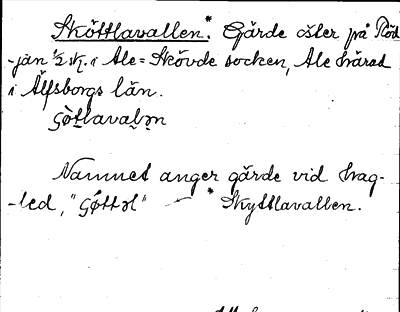 Sköttlavallen.* Gärde öster på Röd-
-jan ½ sk. i Ale=Skövde socken, Ale härad
i Älfsborgs län.
Namnet anger gärde vid hag-
-led, " — * Skyttlavallen.